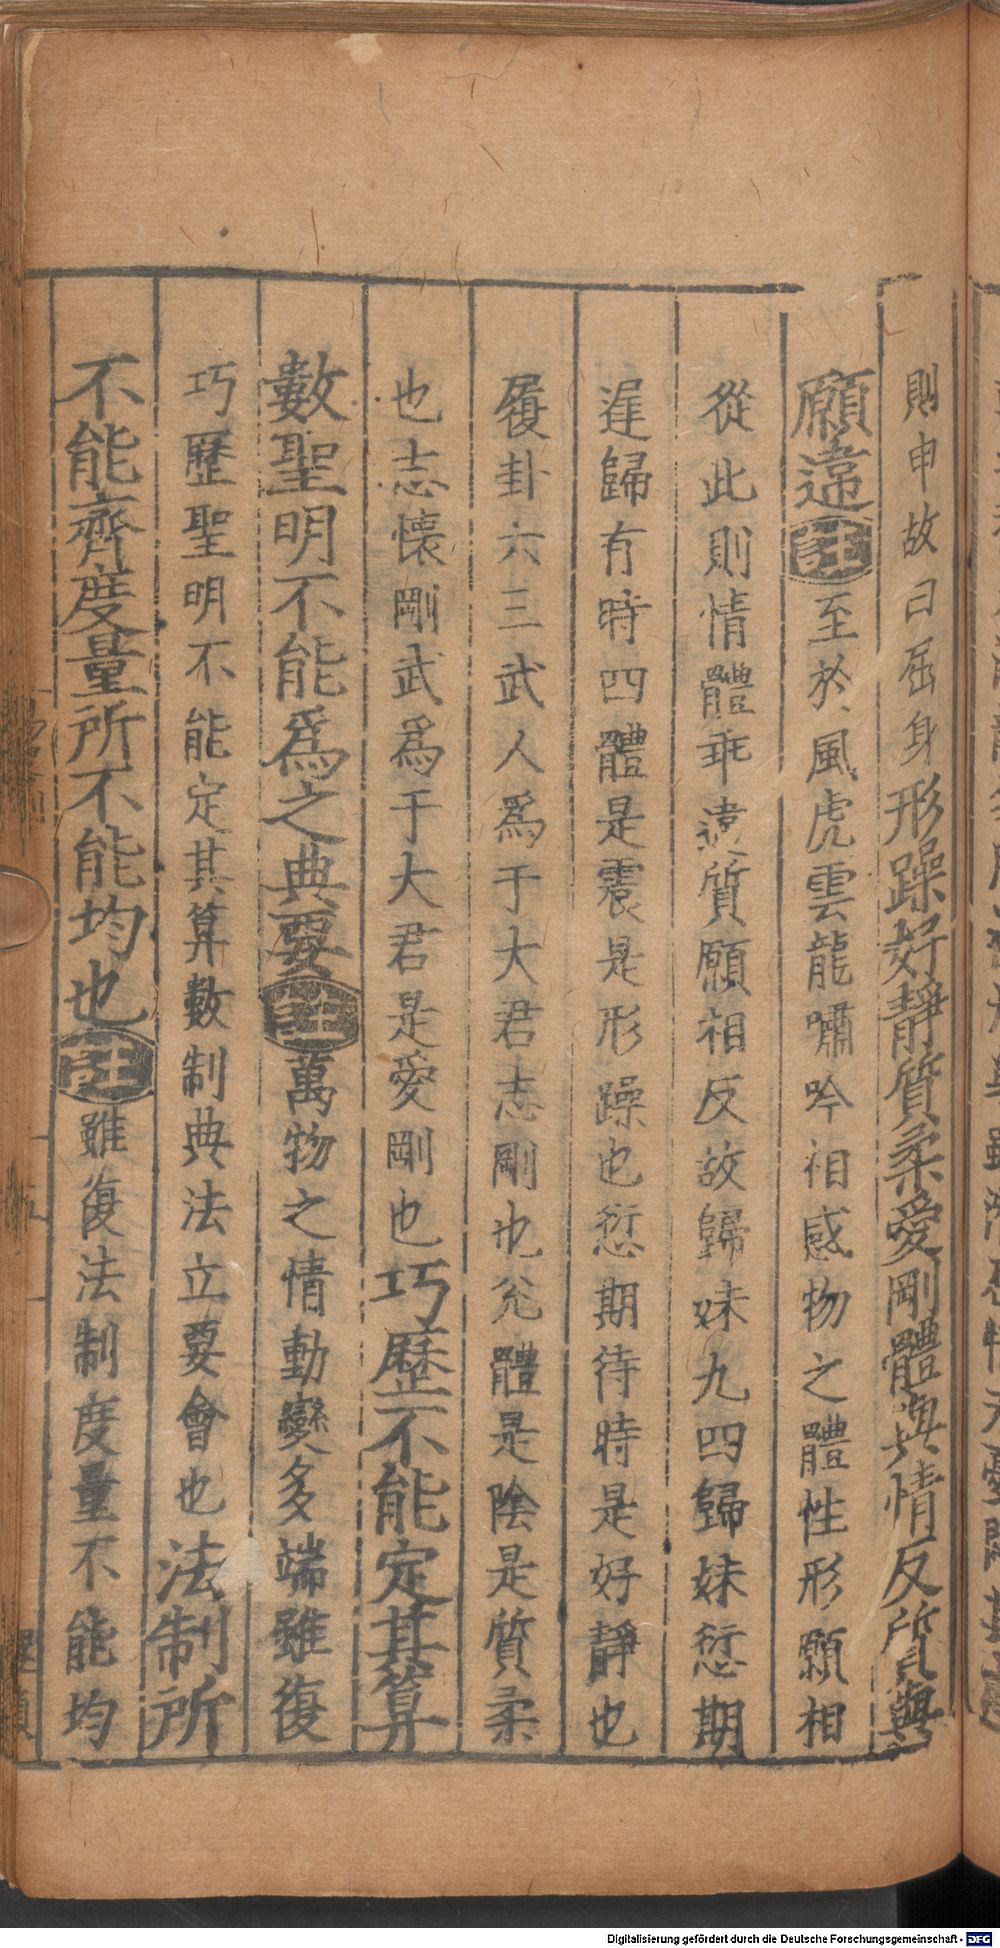 則申故曰屈身形躁好靜質柔愛剛體與情反質與
願違註至於風虎雲龍嘯吟相感物之體性形願相
從此則情體乖違質願相反故歸妹九四歸妹愆期
遲歸有時四體是震是形躁也愆期待時是好靜也
履卦六三武人爲于大君志剛也兊體是陰是質柔
也志懷剛武爲于大君是愛剛也巧歷不能定其算
數聖明不能爲之典要註萬物之情動變多端雖復
巧歷聖明不能定其算數制典法立要會也法制所
不能齊度量所不能均也註雖復法制度量不能均
Digitalisierung gefördert durch die Deutsche Forschungsgemeinschaft - DFG